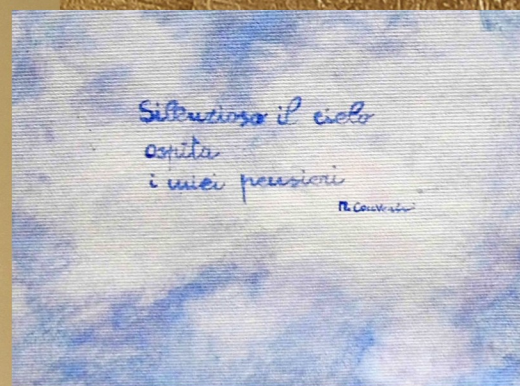 Silenzioso il cielo
ospita
i miei pensieri